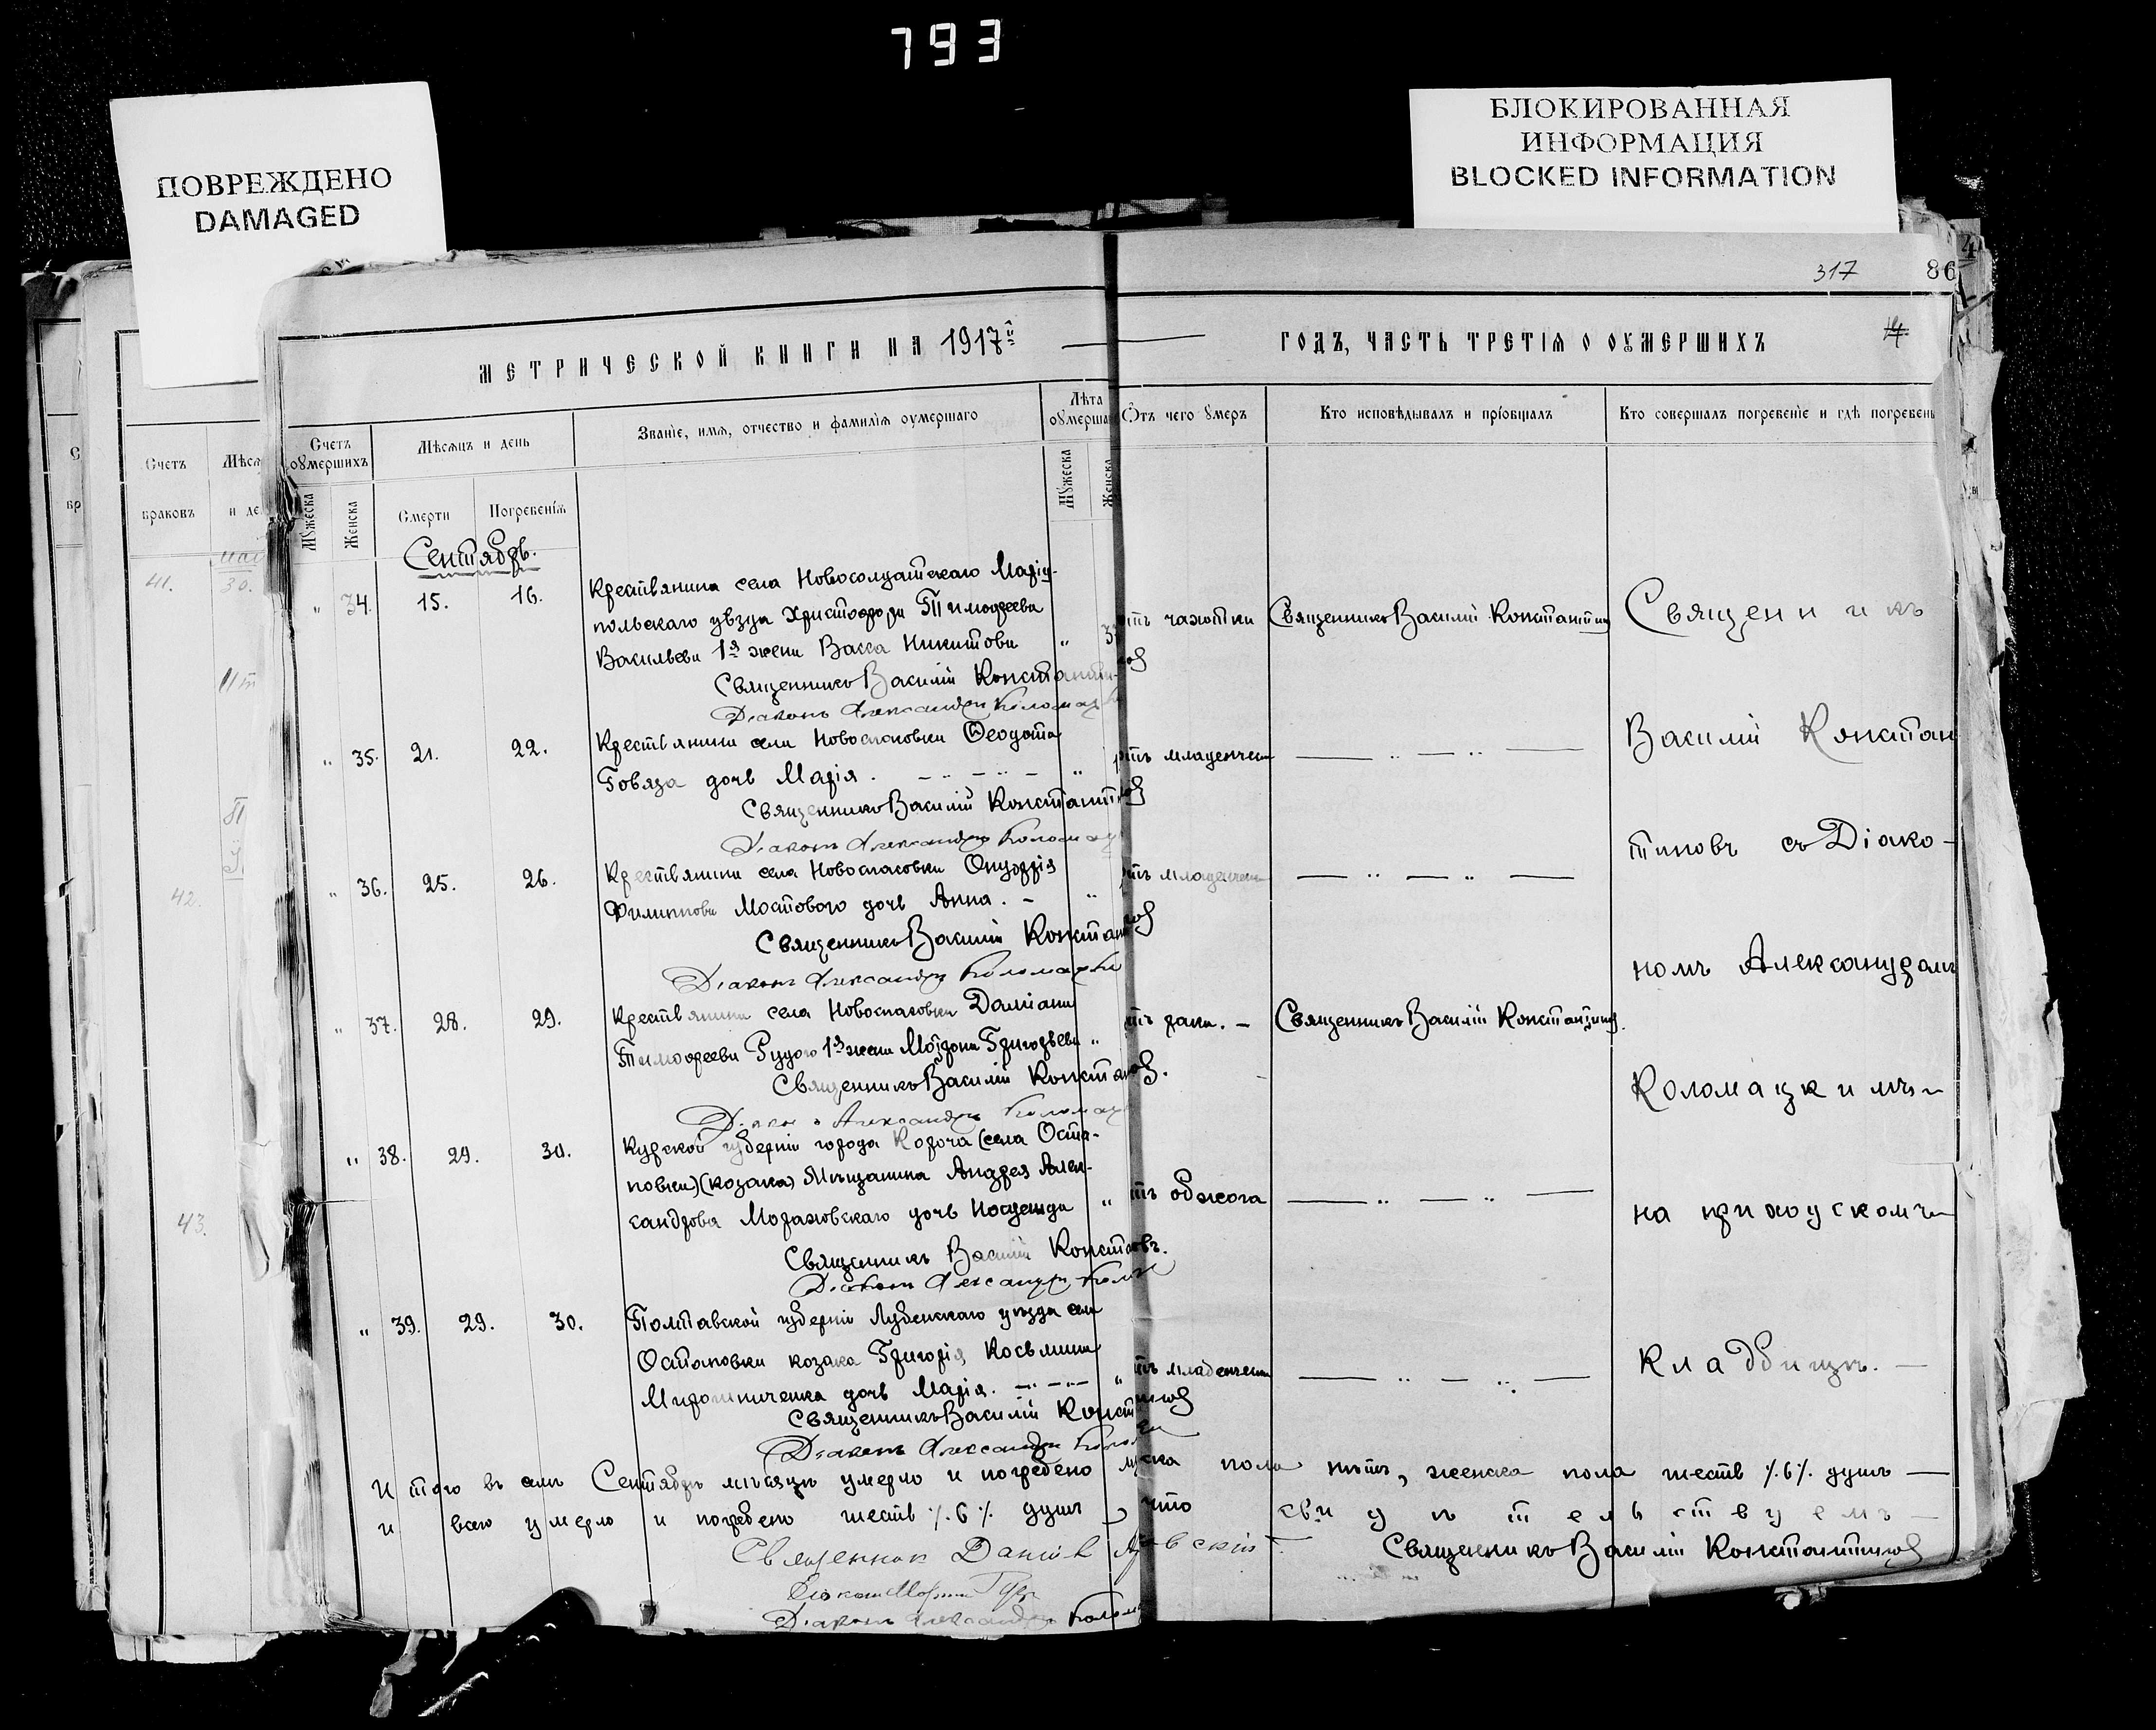 793
ПОВРЕЖДЕНО
DAMAGED
БЛОКИРОВАННАЯ
ИНФОРМАЦИЯ
BLOCKED INFORMATION
317 86
МЕТРИЧЕСКОЙ КНИГИ НА 1917й
ГОДЪ, ЧАСТЬ ТРЕТІЯ О ОУМЕРШИХЪ
Счетъ
браковъ
Мѣся
и де
41. 30.
42.
43.
Счетъ
оумершихъ
Мужеска
Женска
Мѣсяцъ и день
Смерти
Погребенія
Званіе, имя, отчество и фамилія оумершаго
Лѣта
оумерша
Мужеска
Женска
Отъ чего умеръ
Кто исповѣдывалъ и пріобщалъ
Кто совершалъ погребеніе и гдѣ погребены
Сентябрь.
" 34. 15. 16.
Крестьянина села Новосолдатскаго Маріу-
польскаго уѣзда Христофора Тимофеева
Васильева 1я жена Васса Никитова "
отъ чахотки
Священникъ Василій Константинов
Священникъ Василій Константинов
Діаконъ Александръ Коломац
" 35. 21. 22.
Крестьянина села Новоспасовки Ѳеодота
Говяза дочь Марія. "
отъ младенчес
Священникъ Василій Константинов
Діаконъ Александръ Коломац
" 36. 25. 26.
Крестьянина села Новоспасовки Онуфрія
Филиппова Мостового дочь Анна. "
отъ младенчес
Священникъ Василій Константинов
Діаконъ Александръ Коломацки
" 37. 28. 29.
Крестьянина села Новоспасовки Даміана
Тимофеева Рудого 1я жена Матрона Григорьева "
отъ рака.
Священникъ Василій Константинов.
Священникъ Василій Констанов.
Діаконъ Александръ Коломац
" 38. 29. 30.
Курской губерніи города Короча (села Оста-
повки) (козака) Мѣщанина Андрея Алек-
сандрова Мораховскаго дочь Надежда "
отъ обжога
Священникъ Василій Констановъ.
Діаконъ Александръ
" 39. 29. 30.
Полтавской губерніи Лубенскаго уѣзда села
Остаповки козака Григорія Косьмина
Мирошниченка дочь Марія. "
отъ младенчес
Священникъ Василій Константинов
Діаконъ Александръ
Священникъ
Василій Констан
тиновъ съ Діако-
номъ Александромъ
Коломацкимъ
на приходскомъ
кладбищѣ.
Итого въ семъ Сентябрѣ мѣсяцѣ умерло и погребено мужска пола нѣтъ, женска пола шесть ٪.6٪. душъ —
и всего умерло и погребено шесть ٪.6٪. душъ, что свидѣтельствуемъ —
Священник Даниил
Священникъ Василій Константинов
Діаконъ Александръ Колом